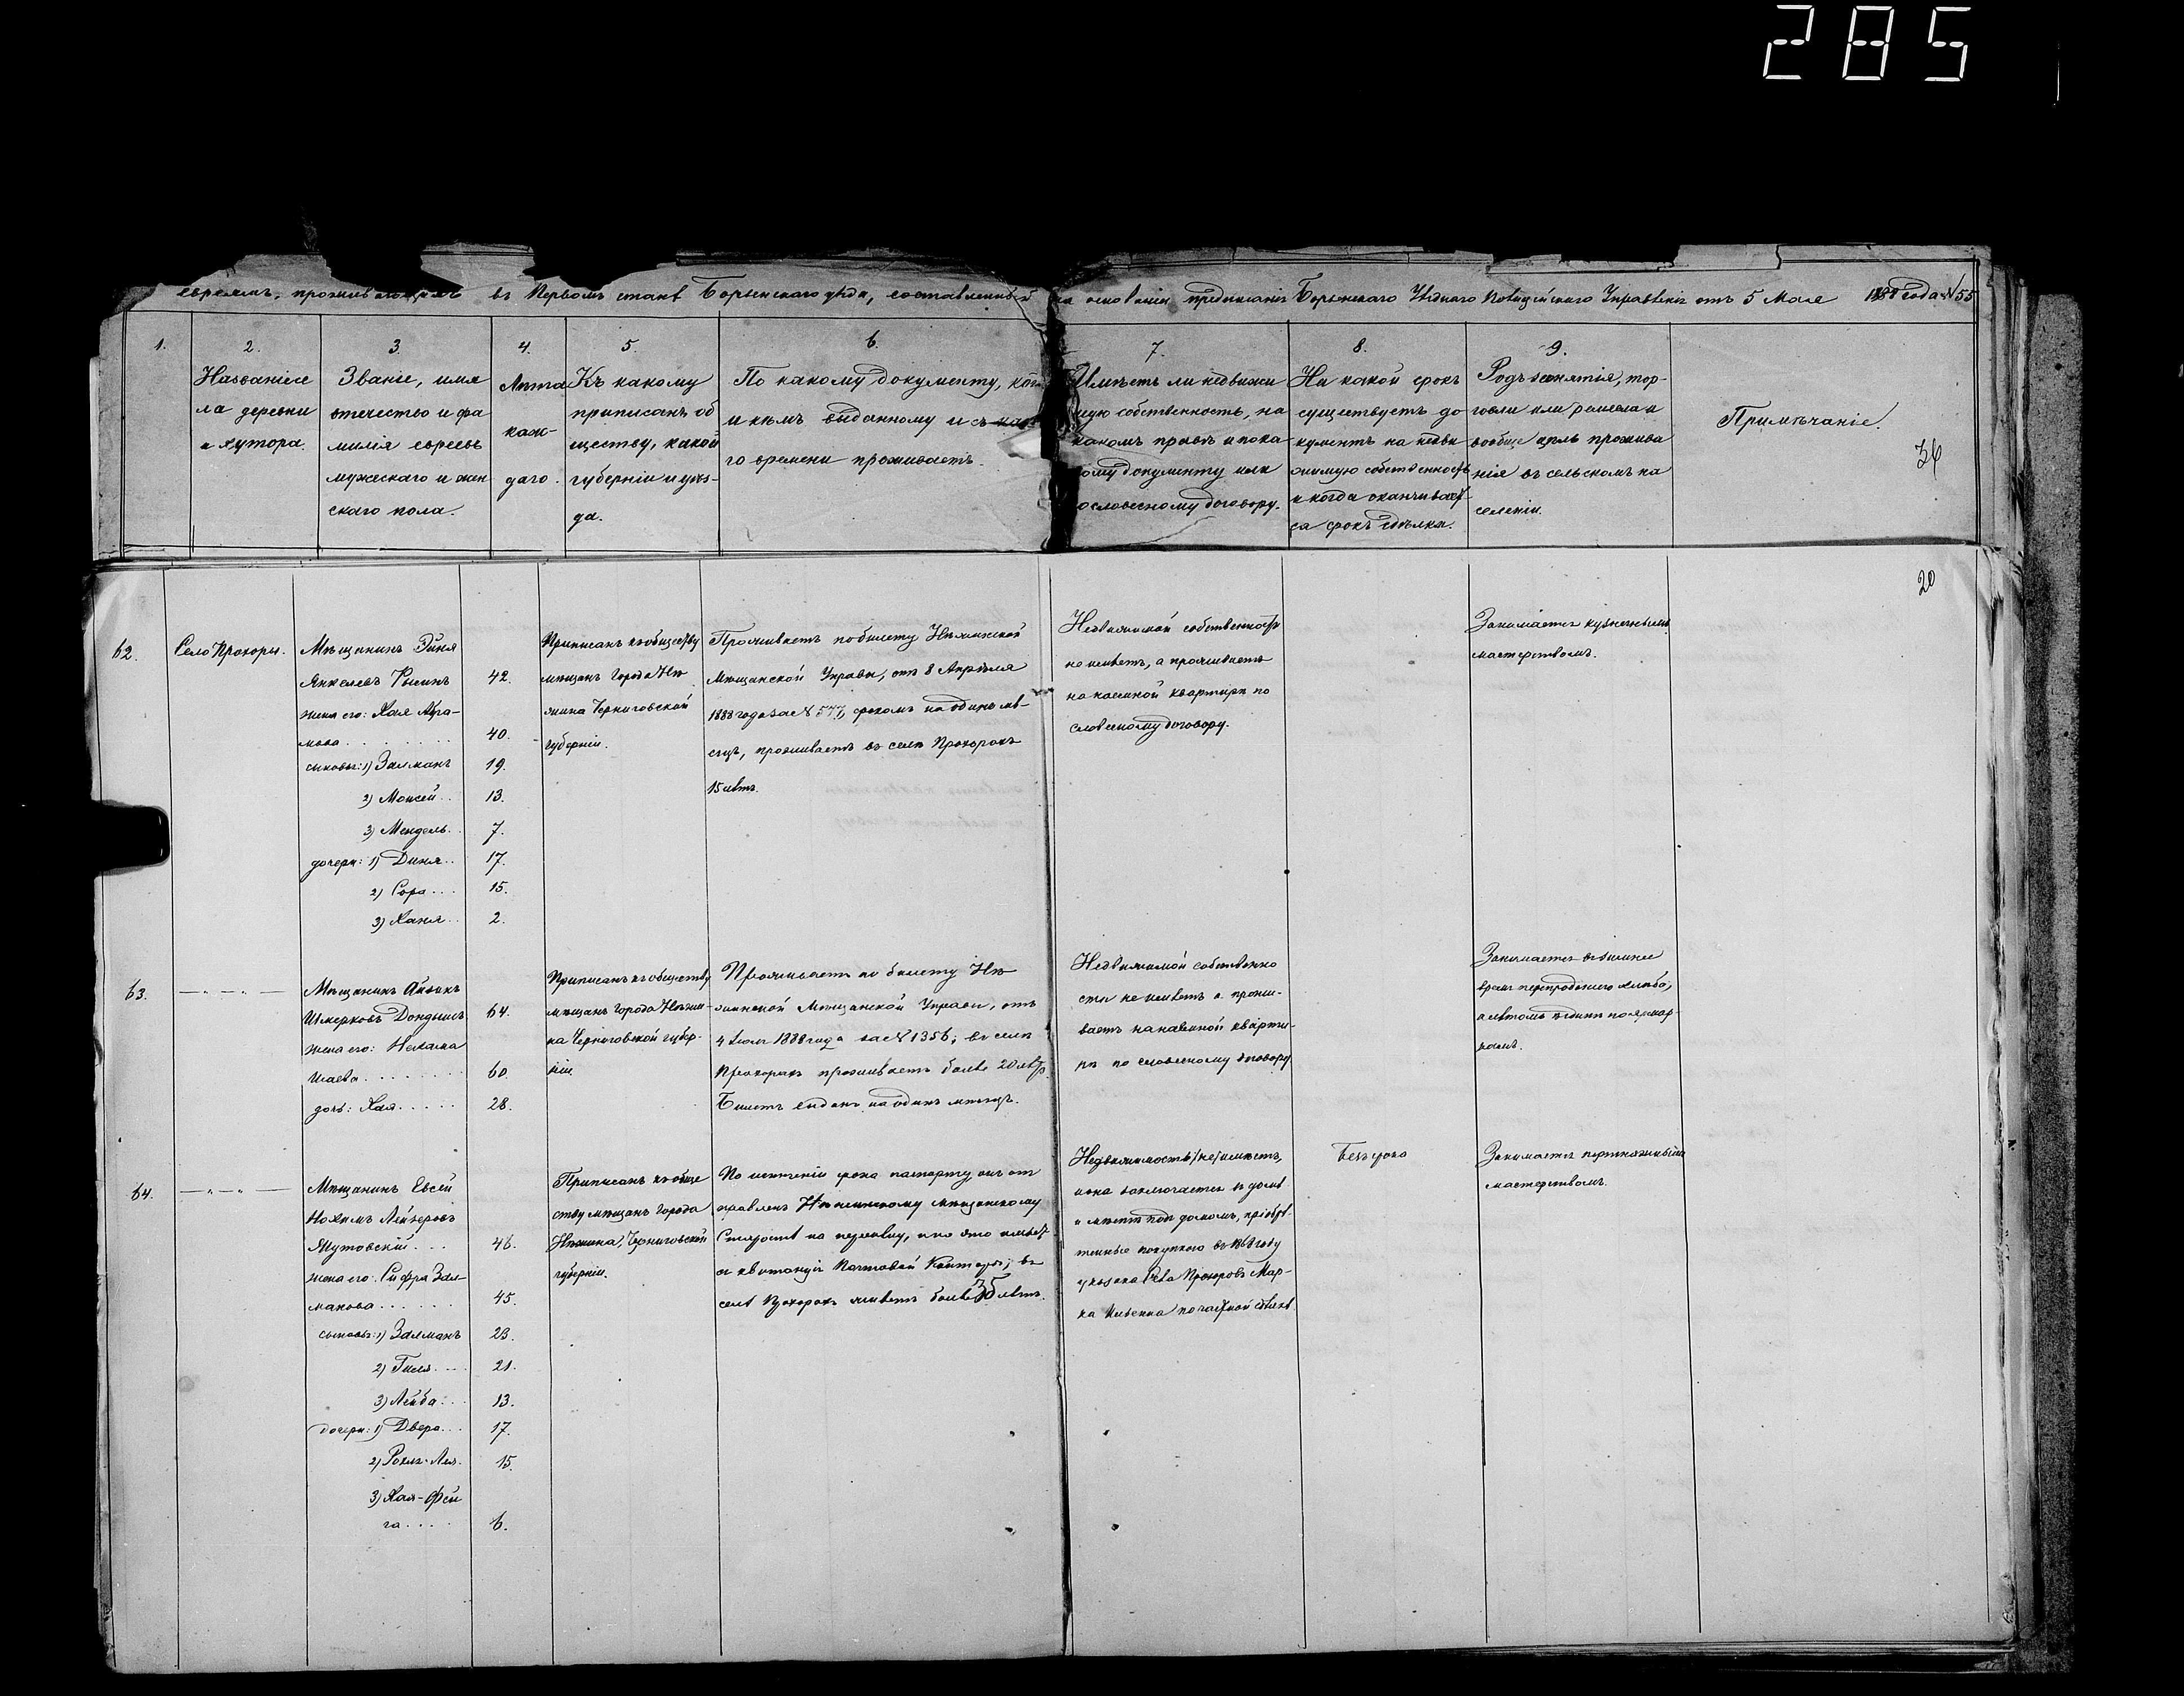 285
евреямъ, проживающимъ въ Первомъ станѣ Борзенскаго уѣзда, составленный на основаніи предписанія Борзенскаго Уѣзднаго Полицейскаго Управленія отъ 5 Мая 1888 года №55
1.
2.
Названіе се
ла деревни
и хутора.
3.
Званіе, имя
отчество и фа
милія евреевъ
мужескаго и жен
скаго пола.
4.
Лѣта
каж-
даго.
5.
Къ какому
приписанъ об
ществу, какой
губерніи и уѣз-
да.
6.
По какому документу, ког
и кѣмъ выданному и съ как
го времени проживаетъ.
7.
Имѣетъ ли недвижи
мую собственность, на
какомъ правѣ и по ка
кому документу или
по словесному договору.
8.
На какой срокъ
существуетъ до
кументъ на недви
жимую собственность
и когда оканчивает
ся срокъ сдѣлки.
9.
Родъ занятія, тор-
говли или ремесла и
вообще цѣль прожива
нія въ сельскомъ на
селеніи.
Примѣчаніе.
36
20
62.
Село Прохоры.
Мѣщанинъ
Янкелевъ
жена его: Хая Абра-
мова
сыновья: 1) Залманъ
2) Моисей
3) Мендель
дочери: 1) Диня
2) Сора
3) Ханя
42.
40.
19.
13.
7.
17.
15.
2.
Приписанъ къ обществу
мѣщанъ Города Нѣ
жина Черниговской
губерніи.
Проживаетъ по билету Нѣжинской
Мѣщанской Управы, отъ 8 Апрѣля
1888 года за № 577, срокомъ на одинъ мѣ-
сяцъ, проживаетъ въ селѣ Прохорахъ
15 лѣтъ.
Недвижимой собственности
не имѣетъ, а проживаетъ
на наемной квартирѣ по
словесному договору.
Занимается кузнечнымъ
мастерствомъ.
63.
— „ — „ —
Мѣщанинъ Айзикъ
Шмерковъ Дондышъ
жена его: Нехама
Шаева
дочь: Хая
64.
60.
28.
Приписанъ къ обществу
мѣщанъ Города Нѣжи-
на Черниговской губер-
ніи.
Проживаетъ по билету Нѣ
жинской Мѣщанской Управы, отъ
4 1888 года за № 1356; въ селѣ
Прохорахъ проживаетъ болѣе 20 лѣтъ.
Билетъ выданъ на одинъ мѣсяцъ.
Недвижимой собственно
сти не имѣетъ а прожи-
ваетъ на наемной кварти-
рѣ по словесному договору
Занимается въ зимнее
время перепродажею хлѣба,
а лѣтомъ ѣздитъ по ярмар-
камъ.
64.
— „ — „ —
Мѣщанинъ Евсей
Нохимъ Лейзеровъ
Жутовскій
жена его: Сифра Зал-
манова
сыновья: 1) Залманъ
2) Гиля
3) Лейба
дочери: 1) Двера
2) Рохля-Лея
3) Хая-Фей
га
46.
45.
23.
21.
13.
17.
15.
6.
Приписанъ къ обще
ству мѣщанъ Города
Нѣжина, Черниговской
губерніи.
По истеченіи срока паспорту онъ от
правленъ Нѣжинскому мѣщанскому
Старостѣ на перемѣну, и на это имѣет
ся квитанція Почтовой Конторы; въ
селѣ Прохорахъ живетъ болѣе 35 лѣтъ.
Недвижимость имѣетъ,
и она заключается въ домѣ
и мѣстѣ подъ домомъ, пріобрѣ-
тенные покупкою въ 1868 году
у козака Села Прохоровъ Мар-
ка по частной сдѣлкѣ
Безъ срока
Занимается портняжнымъ
мастерствомъ.